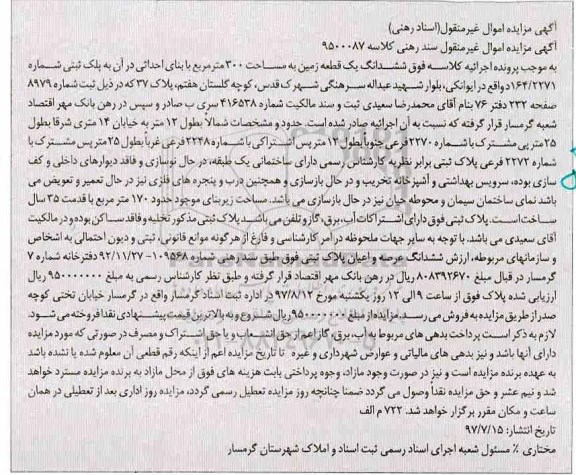 آگهی مزایده اموال غیرمنقول(اسناد رهنی)
آگهی مزایده اموال غیرمنقول سند رهنی کلاسه ۹۵۰۰۰۸۷
به موجب پرونده اجرائیه کلاسه فوق ششدانگ یک قطعه زمین به مساحت ۳۰۰ مترمربع با بنای احداثی در آن به پلک ثبتی شماره
۱۶۴/۲۲۷۱ واقع در ایوانکی، بلوار شهید عبداله سرهنگی شهرک قدس، کوچه گلستان هفتم، پلاک ۳۷ که در ذیل ثبت شماره ۸۹۷۹
صفحه ۲۳۲ دفتر ۷۶ بنام آقای محمدرضا سعیدی ثبت و سند مالکیت شماره ۴۱۶۵۳۸ سری ب صادر و سپس در رهن بانک مهر اقتصاد
شعبه گرمسار قرار گرفته که نسبت به آن اجرائیه صادر شده است. حدود و مشخصات شمالاً بطول ۱۲ متر به خیابان ۱۴ متری شرقا بطول
۲۵ متر پی مشترک با شماره ۲۲۷۰ فرعی جنوباً بطول ۱۲ متر پس اشتراکی با شماره ۲۲۴۸ فرعی غرباً بطول ۲۵ متر پس مشترک با
شماره ۲۲۷۲ فرعی پلاک ثبتی برابر نظریه کارشناس رسمی دارای ساختمانی یک طبقه، در حال نوسازی و فاقد دیوارهای داخلی و کف
سازی بوده، سرویس بهداشتی و آشپزخانه تخریب و در حال بازسازی و همچنین درب و پنجره های فلزی نیز در حال تعمیر و تعویض می
باشد نمای ساختمان سیمان و محوطه حیان نیز در حال بازسازی می باشد. مساحت زیربنای موجود حدود ۱۷۰ متر مربع با قدمت ۳۵ سال
ساخت است. پلاک ثبتی فوق دارای اشتراکات آب، برق، گاز و تلفن می باشد. پلاک ثبتی مذکور تخلیه و فاقد ساکن بوده و در مالکیت
آقای سعیدی می باشد. با توجه به سایر جهات ملحوظه در امر کارشناسی و فارغ از هر گونه موانع قانونی، ثبتی و دیون احتمالی به اشخاص
و سازمانهای مربوطه، ارزش ششدانگ عرصه و اعیان پلاک ثبتی فوق طبق سند رهنی شماره ۱۰۹۵۶۸-۹۲/۱۱/۲۷ دفترخانه شماره ۷
گرمسار در قبال مبلغ ۸۰۸۳۹۲۶۷۰ ریال در رهن بانک مهر اقتصاد قرار گرفته و طبق نظر کارشناس رسمی به مبلغ ۹۵۰۰۰۰۰۰۰ ریال
ارزیابی شده پلاک فوق از ساعت ۹ الی ۱۲ روز یکشنبه مورخ ۹۷/۸/۱۳ در اداره ثبت اسناد گرمسار واقع در گرمسار خیابان تختی کوچه
صدر از طریق مزایده به فروش می رسد. مزایده از مبلغ ۹۵۰۰۰۰۰۰۰ ریال شروع و به بالاترین قیمت پیشنهادی نقدا فروخته می شود.
لازم به ذکر است پرداخت بدهی های مربوط به آب، برق، گاز اعم از حق انشعاب و یا حق اشتراک و مصرف در صورتی که مورد مزایده
دارای آنها باشد و نیز بدهی های مالیاتی و عوارض شهرداری و غیره تا تاریخ مزایده اعم از اینکه رقم قطعی آن معلوم شده یا نشده باشد
به عهده برنده مزایده است و نیز در صورت وجود مازاد، وجوه پرداختی بابت هزینه های فوق از محل مازاد به برنده مزایده مسترد خواهد
شد و نیم عشر و حق مزایده نقداً وصول می گردد ضمنا چنانچه روز مزایده تعطیل رسمی گردد، مزایده روز اداری بعد از تعطیلی در همان
ساعت و مکان مقرر برگزار خواهد شد. ۷۲۲ م الف
تاریخ انتشار: ۹۷/۷/۱۵
مختاری ٪ مسئول شعبه اجرای اسناد رسمی ثبت اسناد و املاک شهرستان گرمسار